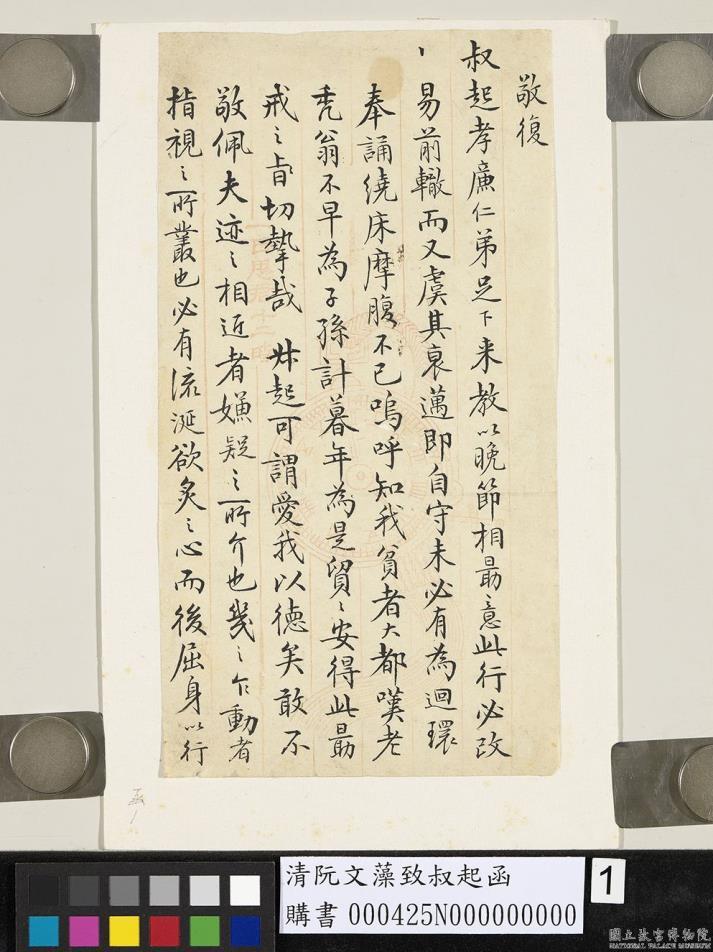 敬復
叔起孝廉仁弟足下来教以晚節相勗意此行必改
易前轍而又虞其衰邁即自守未必有為迴環
奉誦繞床摩腹不已嗚呼知我貧者大都嘆老
禿翁不早為子孫計暮年為是貿貿安得此勗
戒之旨切摯哉 叔起可謂愛我以德矣敢不
敬佩夫迹之相近者嫌疑之所介也幾之乍動者
指視之所叢也必有流涎欲炙之心而後屈身以行
清阮文藻致叔起函
購書 000425N000000000
1
國立故宮博物院
NATIONAL PALACE MUSEUM